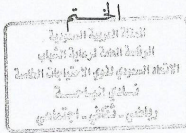 الختم
المملكة العربية السعودية
الرئاسة العامة لرعاية الشباب
الاتحاد السعودي لذوي الاحتياجات الخاصة
نادي
رياضي - ثقافي - اجتماعي